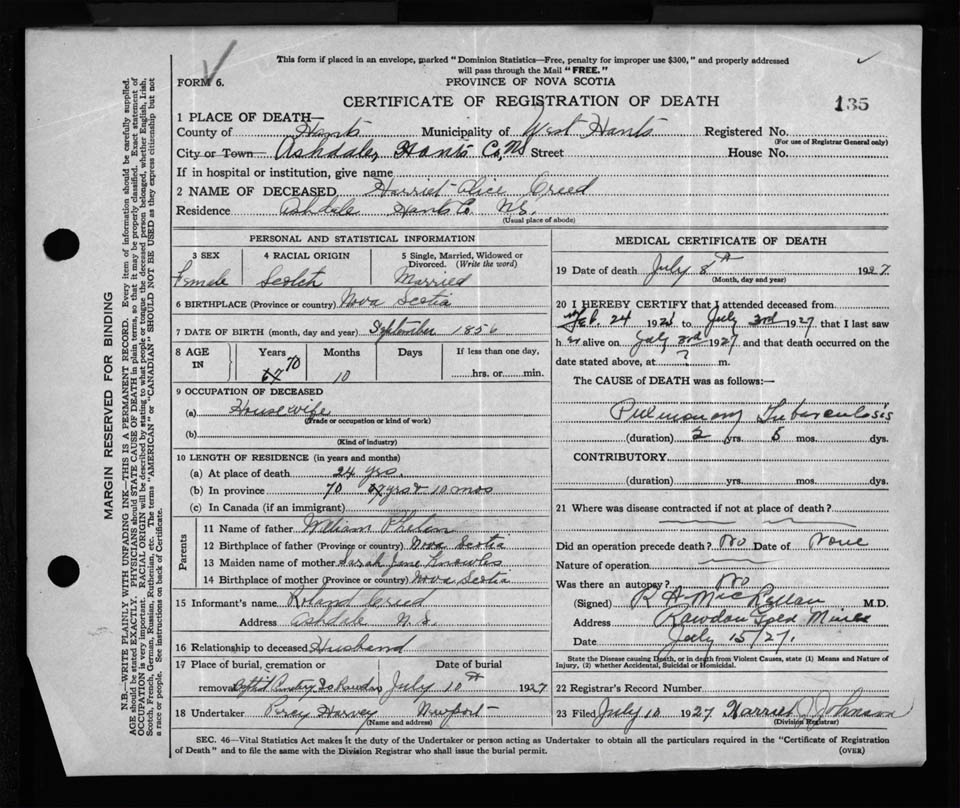 This form if placed in an envelope, marked "Dominion Statistics—Free, penalty for improper use $300," and properly addressed
will pass through the Mail "FREE."
FORM 6.
PROVINCE OF NOVA SCOTIA
CERTIFICATE OF REGISTRATION OF DEATH
135
1 PLACE OF DEATH—
County of Hants Municipality of West Hants Registered No.
(For use of Registrar General only)
City or Town— Ashdale, Hants Co, NS Street House No.
If in hospital or institution, give name
2 NAME OF DECEASED Harriet Alice Creed
Residence Ashdale Hants Co. N.S.
(Usual place of abode)
PERSONAL AND STATISTICAL INFORMATION
3 SEX 4 RACIAL ORIGIN 5 Single, Married, Widowed or
Divorced. (Write the word)
Female Scotch Married
6 BIRTHPLACE (Province or country) Nova Scotia
7 DATE OF BIRTH (month, day and year) September 1856
8 AGE IN Years Months Days If less than one day,
70 10 hrs. or min.
9 OCCUPATION OF DECEASED
(a) Housewife
(Trade or occupation or kind of work)
(b)
(Kind of industry)
10 LENGTH OF RESIDENCE (in years and months)
(a) At place of death 24 yrs.
(b) In province 70 yrs & 10 mos
(c) In Canada (if an immigrant)
Parents
11 Name of father William
12 Birthplace of father (Province or country) Nova Scotia
13 Maiden name of mother Sarah Jane Knowles
14 Birthplace of mother (Province or country) Nova Scotia
15 Informant's name Roland Creed
Address Ashdale N.S.
16 Relationship to deceased Husband
17 Place of burial, cremation or Date of burial
removal Rawdon July 10th 1927
18 Undertaker Percy Harvey Newport
(Name and address)
MEDICAL CERTIFICATE OF DEATH
19 Date of death July 8th 1927
(Month, day and year)
20 I HEREBY CERTIFY that I attended deceased from
Feb. 24 192 to July 3rd 1927 that I last saw
h er alive on July 3rd 1927 and that death occurred on the
date stated above, at ? m.
The CAUSE of DEATH was as follows:—
Pulmonary Tuberculosis
(duration) 2 yrs. 5 mos. dys.
CONTRIBUTORY
(duration) yrs. mos. dys.
21 Where was disease contracted if not at place of death?
Did an operation precede death? No Date of None
Nature of operation
Was there an autopsy? No
(Signed) R A McLellan M.D.
Address Rawdon Gold Mines
Date July 15/27.
State the Disease causing Death, or in death from Violent Causes, state (1) Means and Nature of
Injury, (2) whether Accidental, Suicidal or Homicidal.
22 Registrar's Record Number
23 Filed July 10 1927 Harriet J Johnson
(Division Registrar)
SEC. 46—Vital Statistics Act makes it the duty of the Undertaker or person acting as Undertaker to obtain all the particulars required in the "Certificate of Registration
of Death" and to file the same with the Division Registrar who shall issue the burial permit.
(OVER)
MARGIN RESERVED FOR BINDING
N.B.—WRITE PLAINLY WITH UNFADING INK—THIS IS A PERMANENT RECORD. Every item of information should be carefully supplied.
AGE should be stated EXACTLY. PHYSICIANS should STATE CAUSE OF DEATH in plain terms, so that it may be properly classified. Exact statement of
OCCUPATION is very important. RACIAL ORIGIN will be described by stating to what people or tongue the deceased person belonged, whether English, Irish,
Scotch, French, German, Russian, Ruthenian, etc. The terms "AMERICAN" or "CANADIAN" SHOULD NOT BE USED as they express citizenship but not
a race or people. See instructions on back of Certificate.